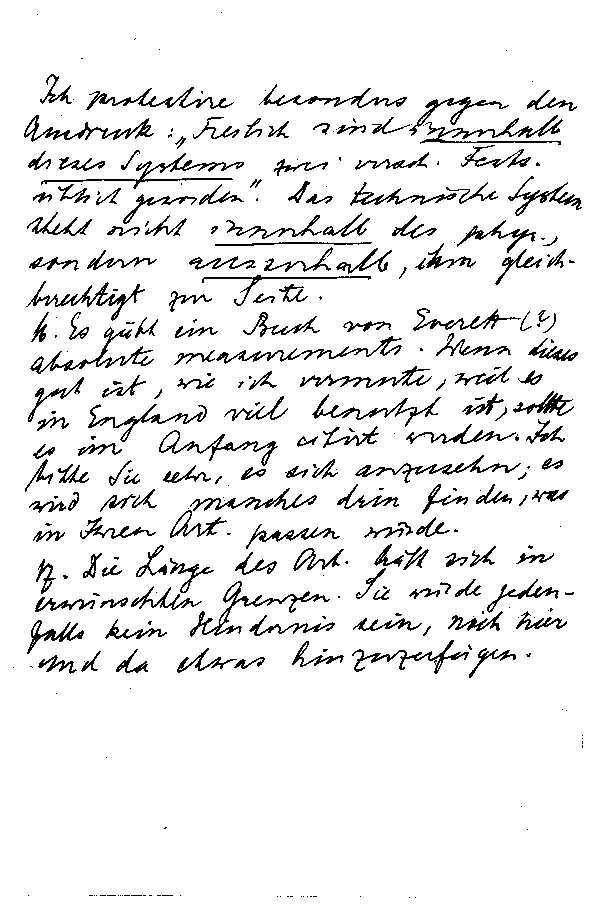 Ich protestire besonders gegen den
Ausdruck: „Freilich sind innerhalb
dieses Systems zwei versch. Fests.
üblich geworden". Das technische System
steht nicht innerhalb des phys.,
sondern ausserhalb, ihm gleich-
berechtigt zur Seite.
Es gibt ein Buch von Everett (?)
absolute measurements. Wenn dieses
gut ist, wie ich vermute, weil es
in England viel benutzt ist, sollte
es im Anfang citirt werden. Ich
bitte Sie sehr, es sich anzusehn; es
wird sich manches drin finden, was
in Ihren Art. passen würde.
Die Länge des Art. hält sich in
erwünschten Grenzen. Sie würde jeden-
falls kein Hindernis sein, noch hier
und da etwas hinzuzufügen.